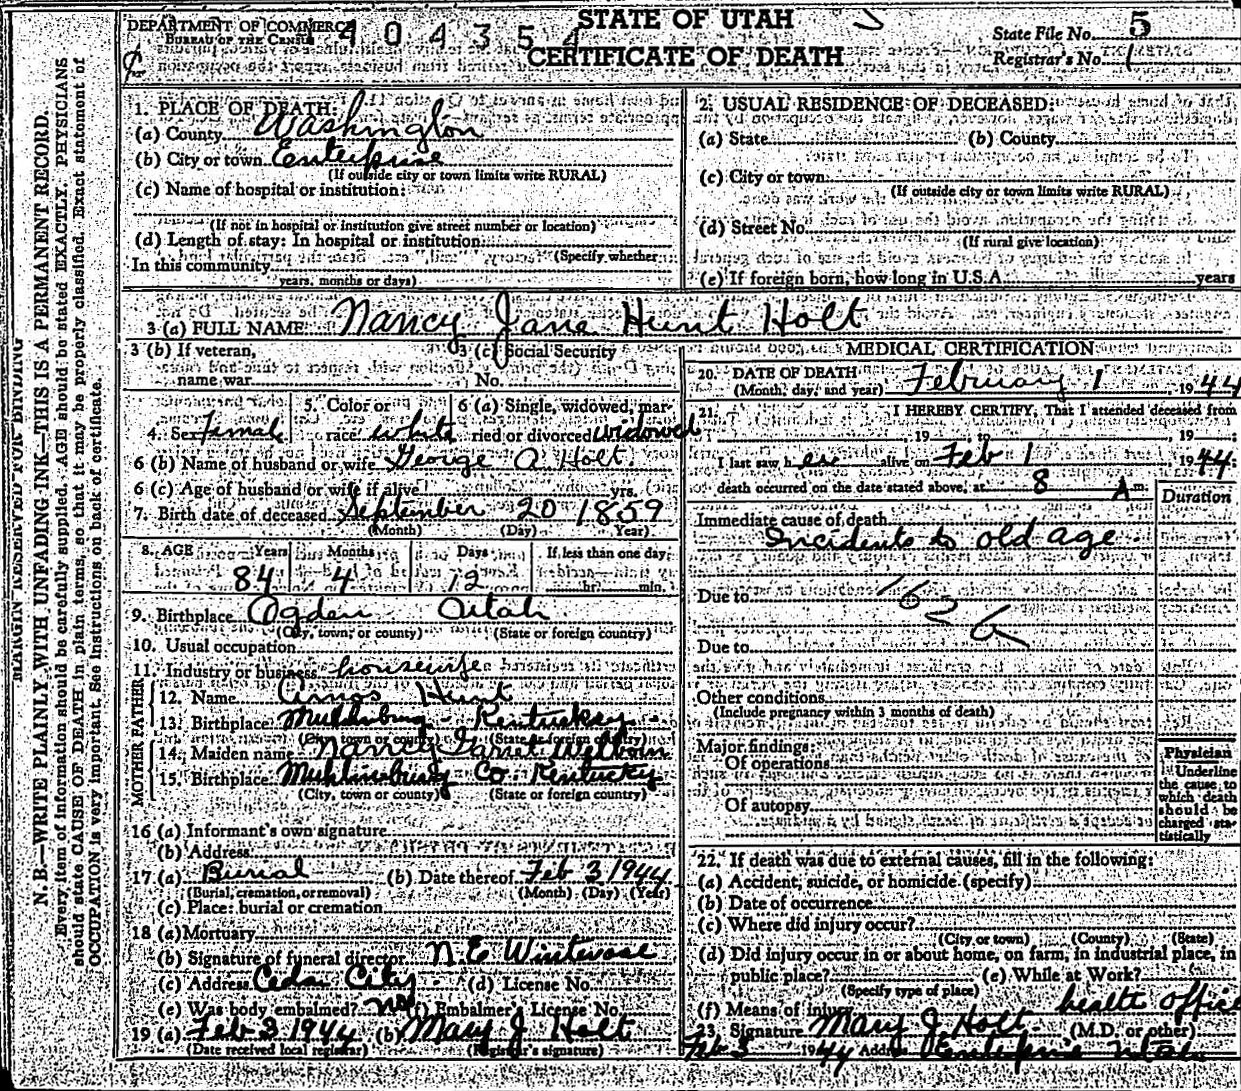 DEPARTMENT OF COMMERCE
BUREAU OF THE CENSUS
404354
STATE OF UTAH
CERTIFICATE OF DEATH
State File No. 5
Registrar's No. 1
MARGIN RESERVED FOR BINDING
N. B.—WRITE PLAINLY WITH UNFADING INK—THIS IS A PERMANENT RECORD.
Every item of information should be carefully supplied. AGE should be stated EXACTLY. PHYSICIANS
should state CAUSE OF DEATH in plain terms, so that it may be properly classified. Exact statement of
OCCUPATION is very important. See Instructions on back of certificate.
1. PLACE OF DEATH:
(a) County Washington
(b) City or town Enterprise
(If outside city or town limits write RURAL)
(c) Name of hospital or institution:
(If not in hospital or institution give street number or location)
(d) Length of stay: In hospital or institution
(Specify whether
In this community
years, months or days)
2. USUAL RESIDENCE OF DECEASED:
(a) State (b) County
(c) City or town
(If outside city or town limits write RURAL)
(d) Street No.
(If rural give location)
(e) If foreign born, how long in U.S.A. years
3 (a) FULL NAME Nancy Jane Hunt Holt
3 (b) If veteran,
name war
3 (c) Social Security
No.
4. Sex Female
5. Color or
race white
6 (a) Single, widowed, mar-
ried or divorced widowed
6 (b) Name of husband or wife George A Holt
6 (c) Age of husband or wife if alive yrs.
7. Birth date of deceased September 20 1859
(Month) (Day) Year)
8. AGE Years Months Days If less than one day
84 4 12 hr. min.
9. Birthplace Ogden Utah
(City, town, or county) (State or foreign country)
10. Usual occupation
11. Industry or business housewife
FATHER
12. Name Amos Hunt
13. Birthplace Kentuckey
(City, town or county) (State or foreign country)
MOTHER
14. Maiden name Nancy Garret Welborn
15. Birthplace Co. Kentucky
(City, town or county) (State or foreign country)
16 (a) Informant's own signature
(b) Address
17 (a) Burial (b) Date thereof Feb 3 1944
(Burial, cremation, or removal) (Month) (Day) (Year)
(c) Place: burial or cremation
18 (a) Mortuary
(b) Signature of funeral director N. E.
(c) Address Cedar City (d) License No.
(e) Was body embalmed? (f) Embalmer's License No.
19 (a) Feb 3 1944 (b) Mary J Holt
(Date received local registrar) (Registrar's signature)
MEDICAL CERTIFICATION
20. DATE OF DEATH
(Month, day, and year) February 1, 1944
21. I HEREBY CERTIFY, That I attended deceased from
, 19 , to , 19 ;
I last saw her alive on Feb 1, 1944;
death occurred on the date stated above, at 8 A m.
Duration
Immediate cause of death
Incidents to old age
Due to
162 b
Due to
Other conditions
(Include pregnancy within 3 months of death)
Major findings:
Of operations
Of autopsy
Physician
Underline
the cause to
which death
should be
charged sta-
tistically
22. If death was due to external causes, fill in the following:
(a) Accident, suicide, or homicide (specify)
(b) Date of occurrence
(c) Where did injury occur?
(City or town) (County) (State)
(d) Did injury occur in or about home, on farm, in industrial place, in
public place? (e) While at Work?
(Specify type of place)
(f) Means of injury health office
23. Signature Mary J Holt (M.D. or other)
Feb 3 1944 Address Enterprise Utah